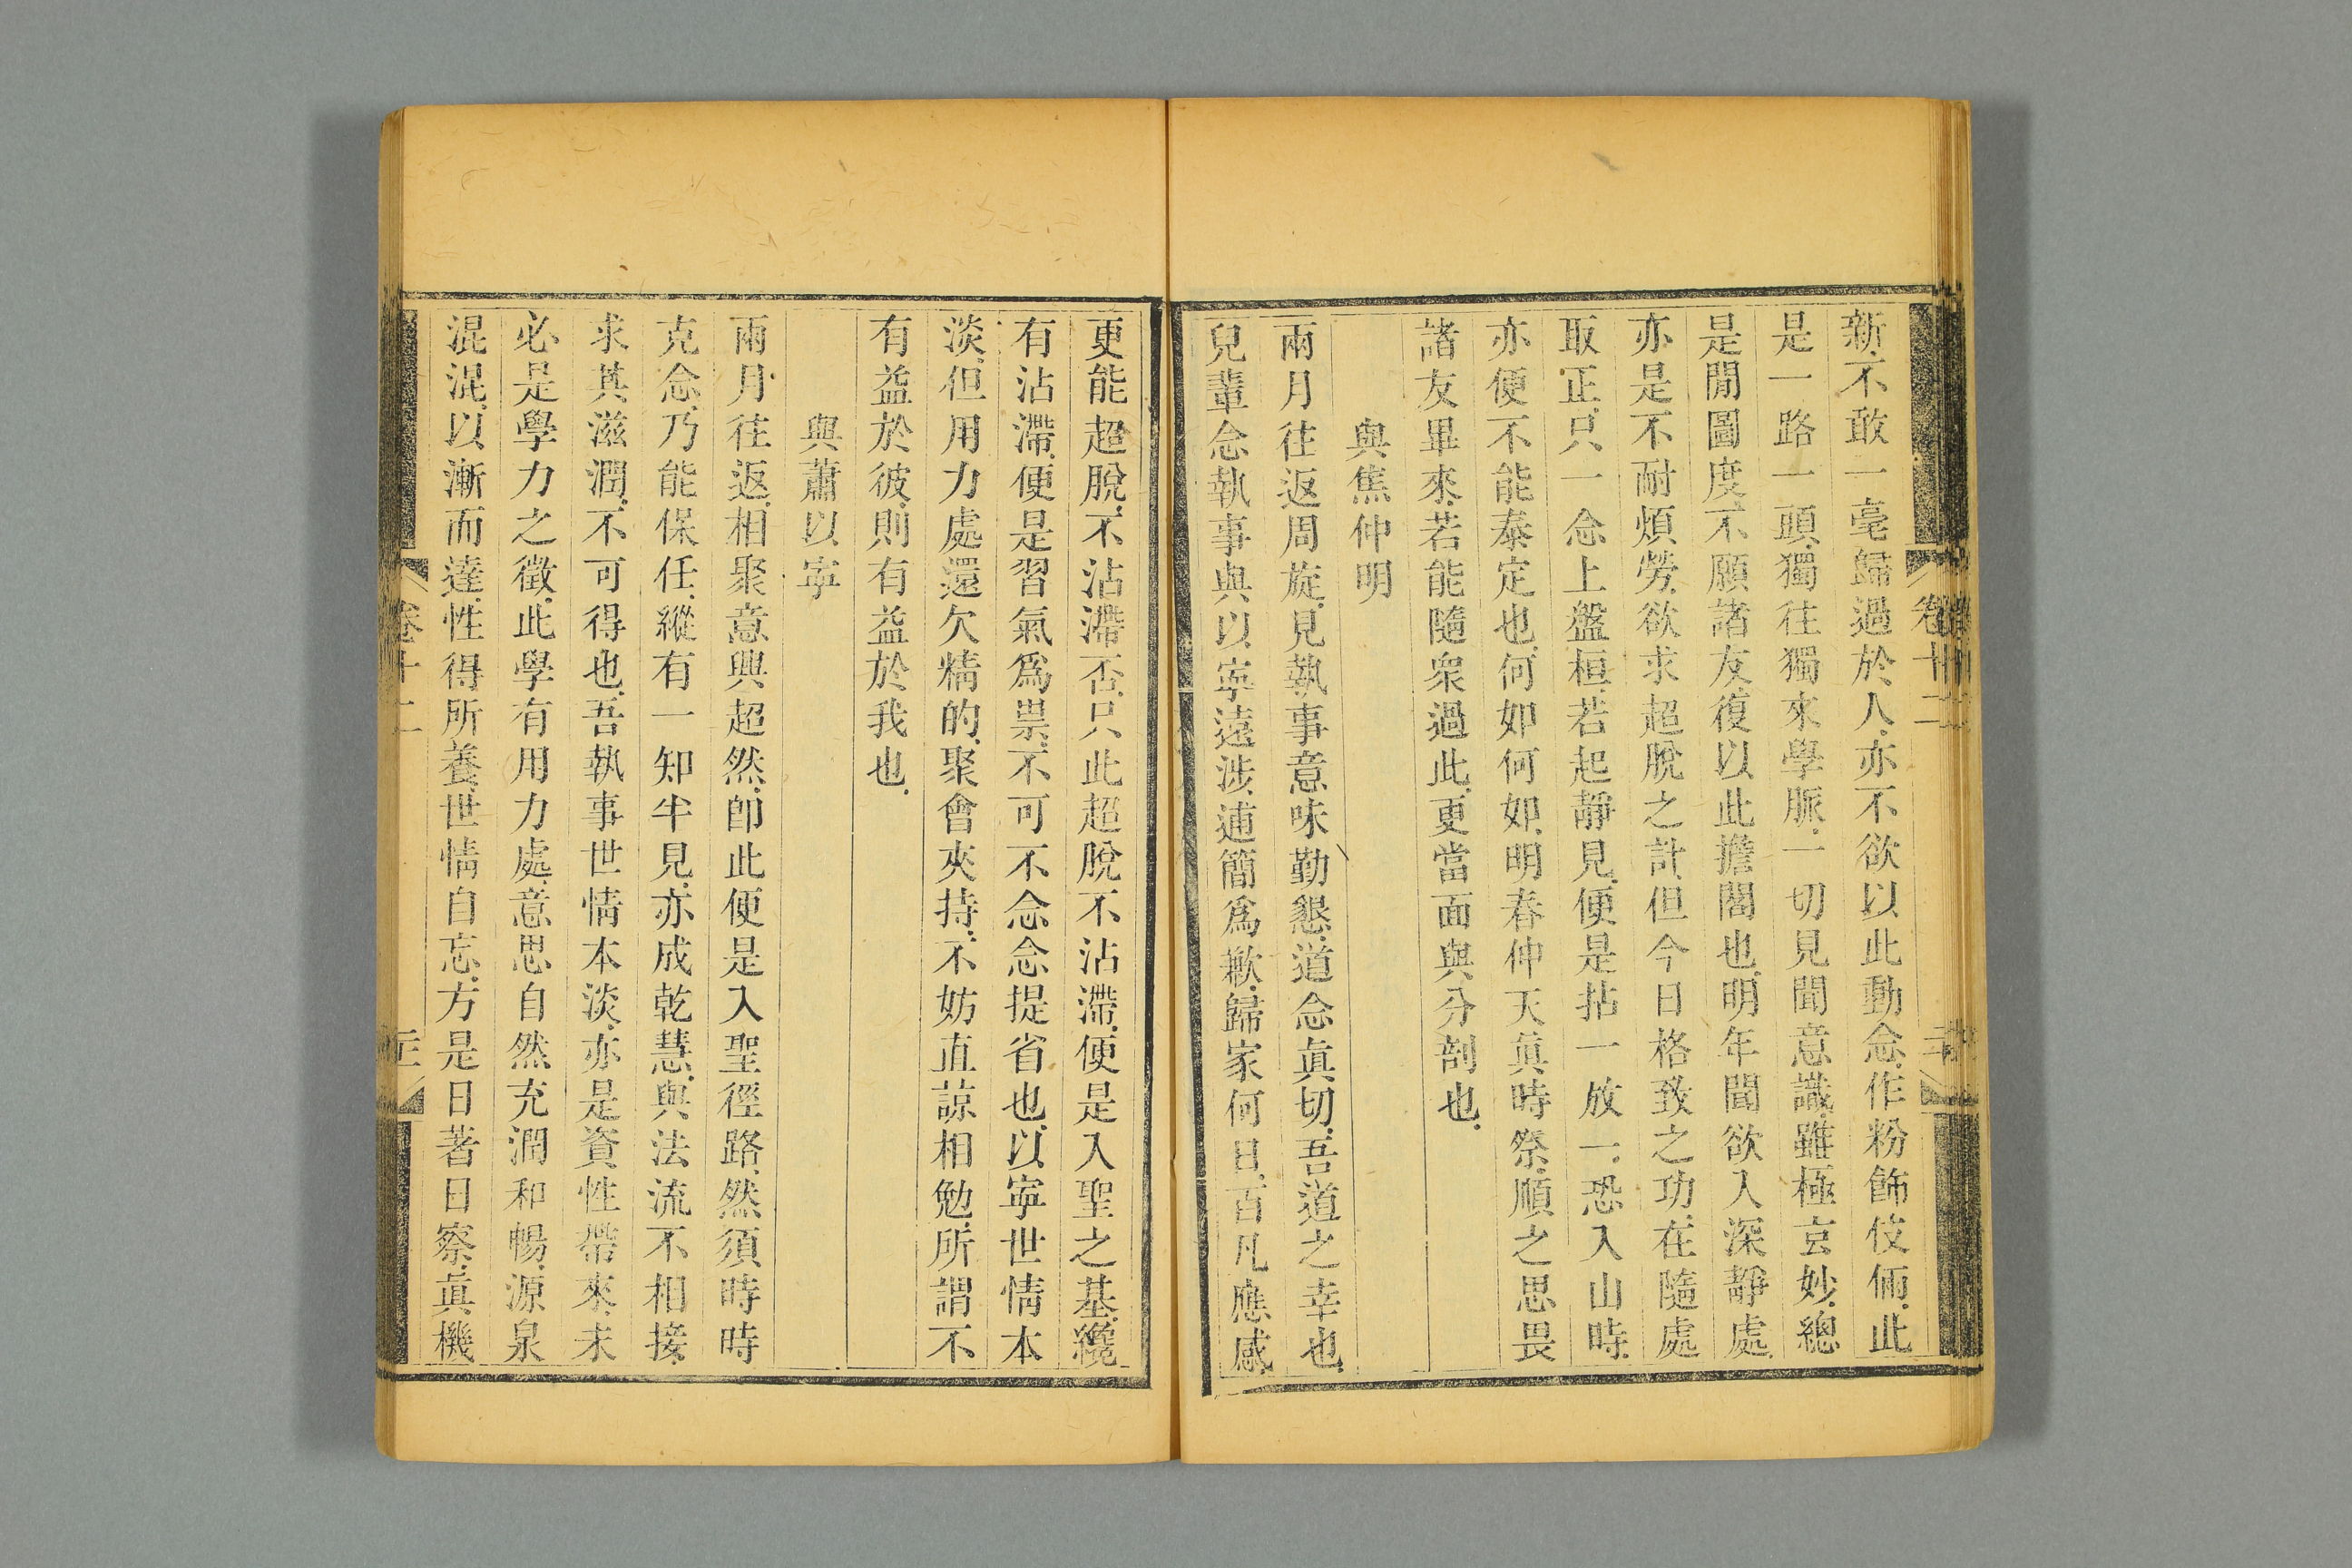 新不敢一毫歸過於人亦不欲以此動念作粉飾伎倆此
是一路一頭獨往獨來學脈一切見聞意識雖極玄妙總
是閒圖度不願諸友復以此擔閣也明年聞欲入深靜處
亦是不耐煩勞欲求超脫之計但今日格致之功在隨處
取正只一念上盤桓若起靜見便是拈一放一恐入山時
亦便不能泰定也何如何如明春仲天真時祭順之思畏
諸友畢來若能隨衆過此更當面與分剖也
與焦仲明
兩月往返周旋見執事意味勤懇道念眞切吾道之幸也
兒輩念執事與以寧遠涉逋簡爲歉歸家何日百凡應感
卷十二
更能超脫不沾滯否只此超脫不沾滯便是入聖之基纔
有沾滯便是習氣爲祟不可不念念提省也以寧世情本
淡但用力處還欠精的聚會夾持不妨直諒相勉所謂不
有益於彼則有益於我也
與蕭以寧
兩月往返相聚意興超然卽此便是入聖徑路然須時時
克念乃能保任縱有一知半見亦成乾慧與法流不相接
求其滋潤不可得也吾執事世情本淡亦是資性帶來未
必是學力之徵此學有用力處意思自然充潤和暢源泉
混混以漸而達性得所養世情自忘方是日著日察眞機
卷十二